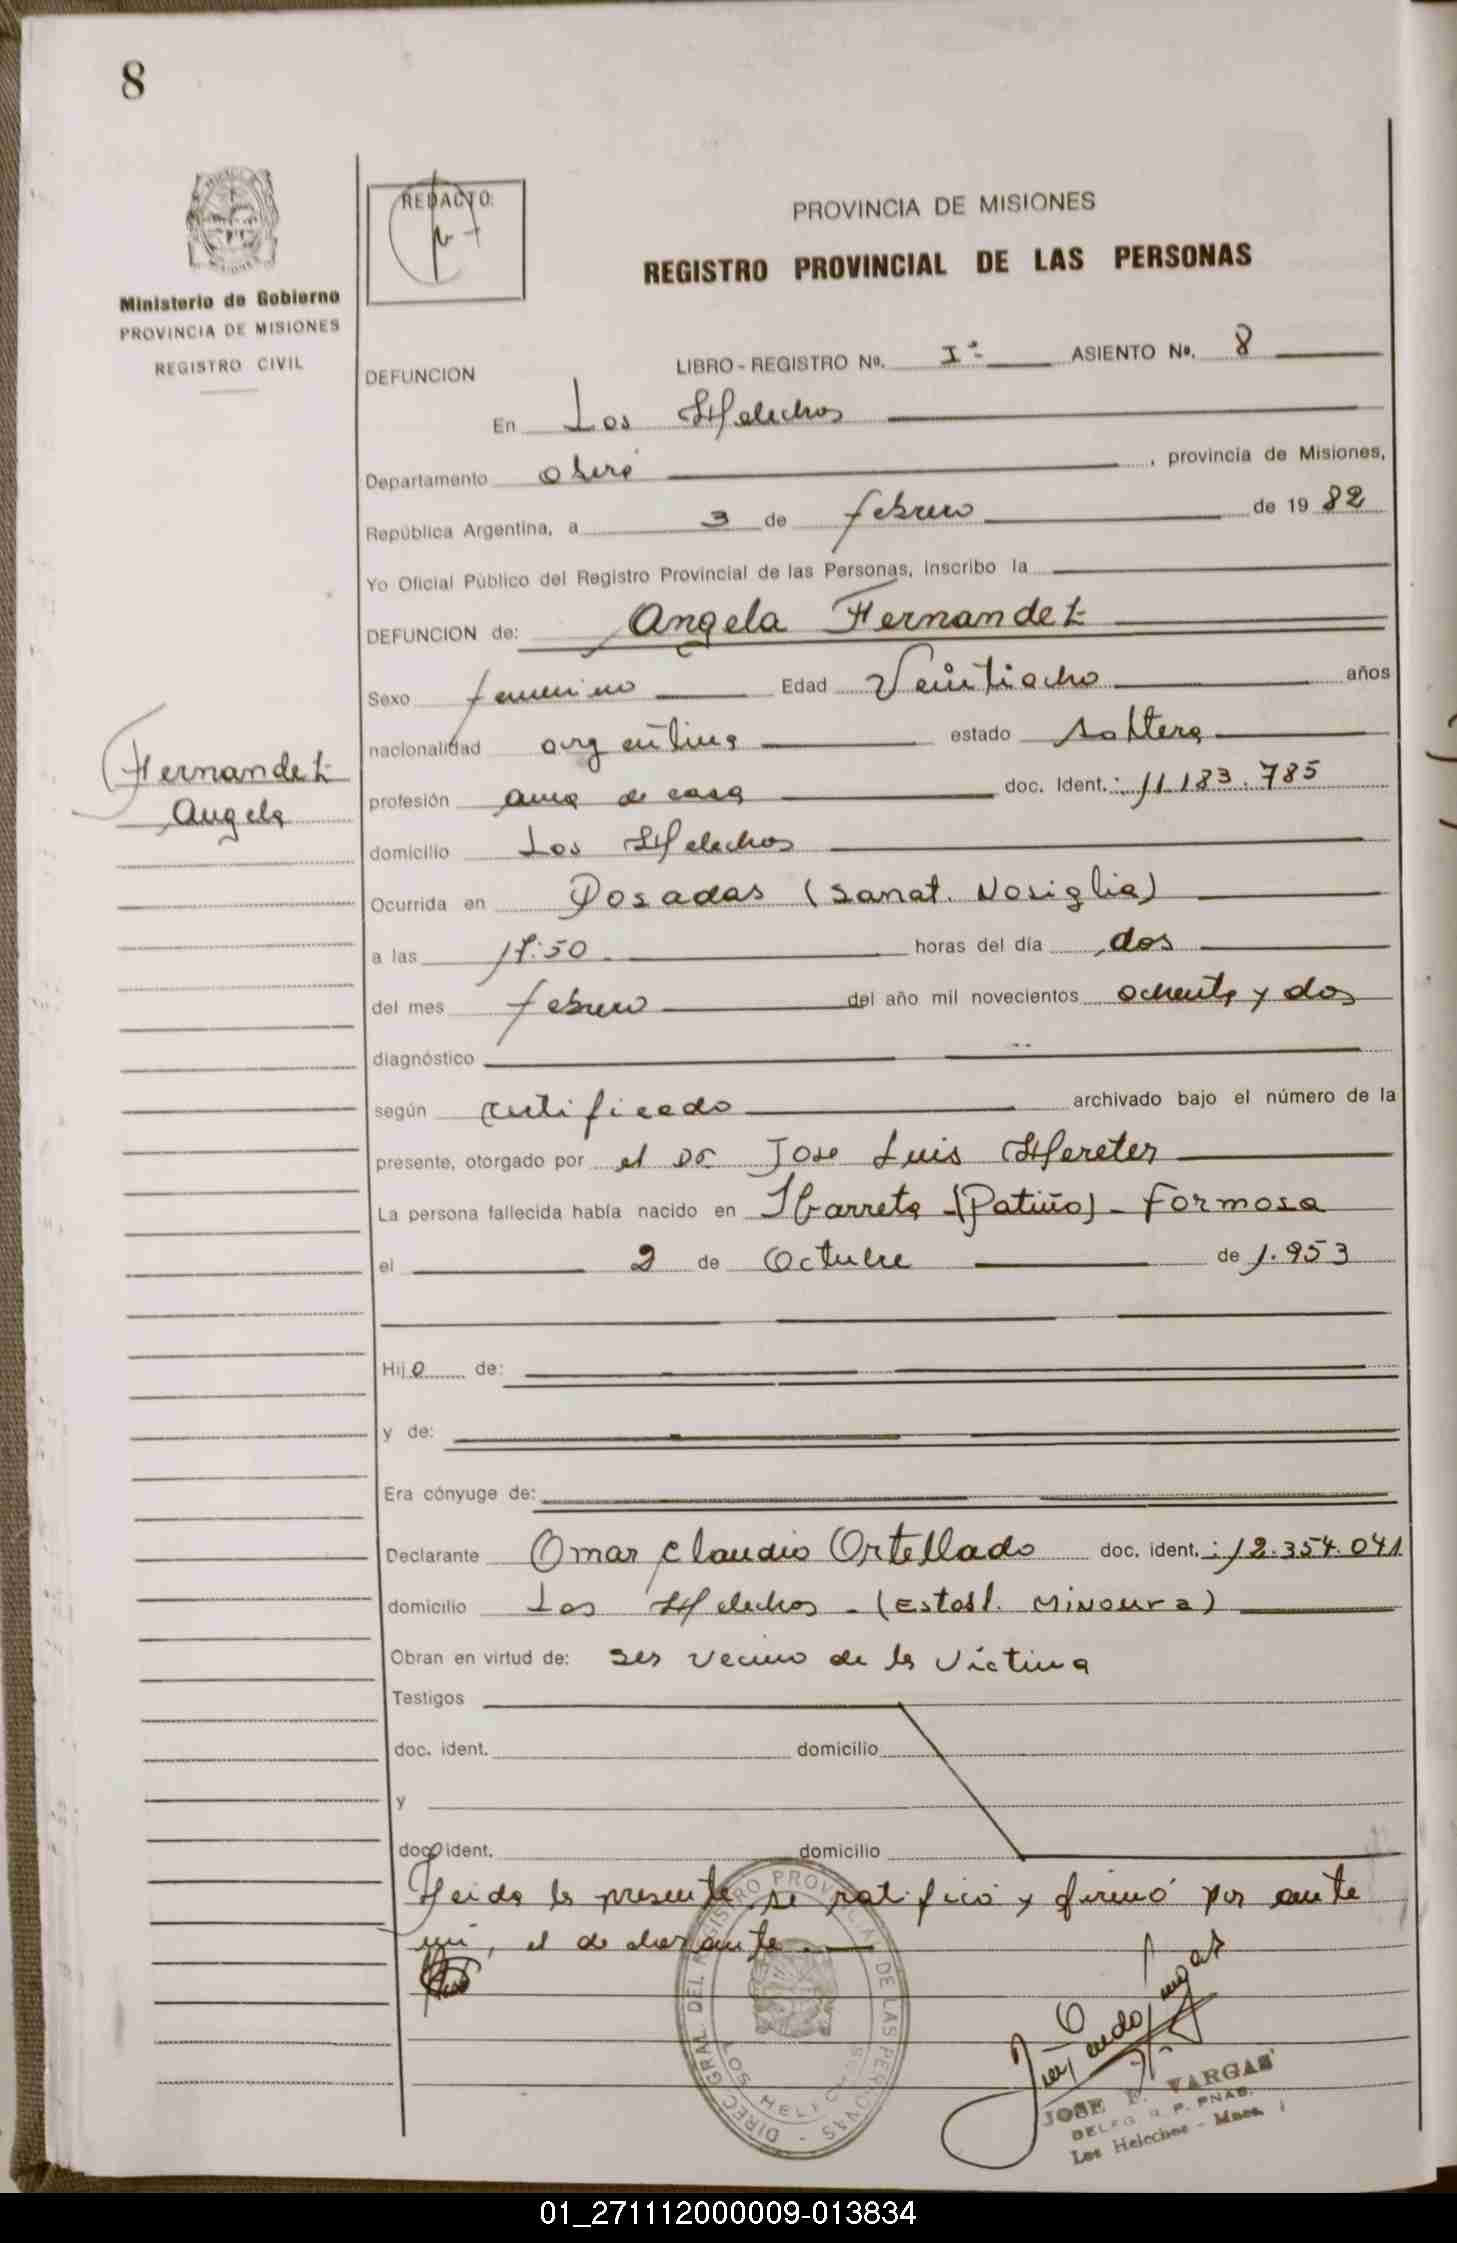 8
REDACTO:
PROVINCIA DE MISIONES
REGISTRO PROVINCIAL DE LAS PERSONAS
Ministerio de Gobierno
PROVINCIA DE MISIONES
REGISTRO CIVIL
DEFUNCION LIBRO - REGISTRO No. Iº ASIENTO No. 8
En Los Helechos
Departamento Oberá, provincia de Misiones,
República Argentina, a 3 de febrero de 1982
Yo Oficial Público del Registro Provincial de las Personas, inscribo la
DEFUNCION de: Angela Fernandez
Sexo femenino Edad Veintiocho años
nacionalidad argentina estado soltera
Fernandez
Angela
profesión ama de casa doc. Ident.: 11.183.785
domicilio Los Helechos
Ocurrida en Posadas (Sanat. Nosiglia)
a las 17:50 horas del día dos
del mes febrero del año mil novecientos ochenta y dos
diagnóstico
según certificado archivado bajo el número de la
presente, otorgado por el Dr Jose Luis Hereter
La persona fallecida había nacido en Ibarreta - (Patiño) - Formosa
el 2 de Octubre de 1.953
Hijo de:
y de:
Era cónyuge de:
Declarante Omar Claudio Ortellado doc. ident.: 12.354.041
domicilio Los Helechos - (Establ. Minoura)
Obran en virtud de: ser vecino de la víctima
Testigos
doc. ident. domicilio
y
doc. ident. domicilio
Leida la presente se ratificó y firmó por ante
mi, el declarante.
DIREC. GRAL. DEL REGISTRO PROVINCIAL DE LAS PERSONAS
LOS HELECHOS
JOSE F. VARGAS
DELEG. R. P. PNAS.
Los Helechos - Mnes.
01_271112000009-013834